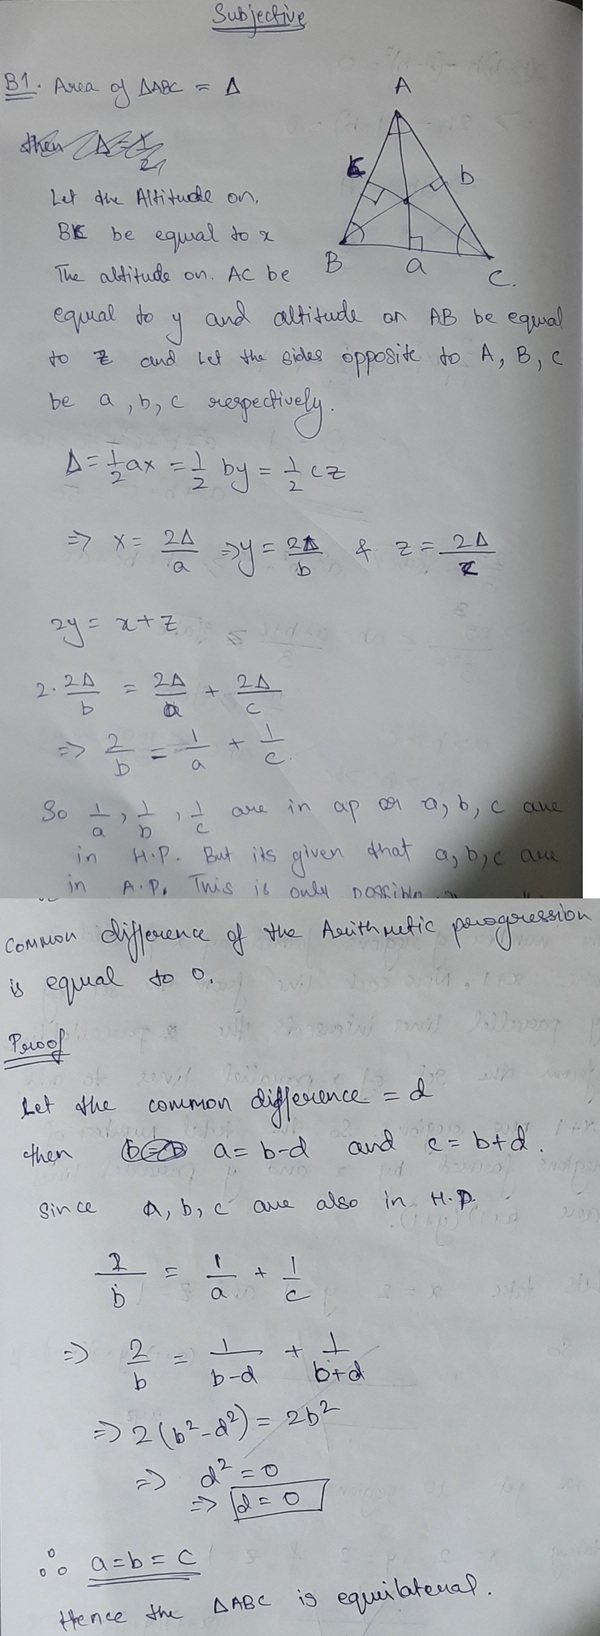 Subjective
B1. Area of ΔABC = Δ
then
Let the Altitude on,
BC be equal to x
The altitude on. AC be
equal to y and altitude on AB be equal
to z and Let the sides opposite to A, B, C
be a, b, c respectively.
A
b
B
a
C.
Δ = 1/2 ax = 1/2 by = 1/2 cz
⇒ x = 2Δ/a ⇒ y = 2Δ/b & z = 2Δ/c
2y = x + z
2. 2Δ/b = 2Δ/a + 2Δ/c
⇒ 2/b = 1/a + 1/c
So 1/a, 1/b, 1/c are in ap or a, b, c are
in H.P. But its given that a, b, c are
in A.P. This is only possible
common difference of the Arithmetic progression
is equal to 0.
Proof
Let the common difference = d
then a = b-d and c = b+d.
since a, b, c are also in H.P.
2/b = 1/a + 1/c
⇒ 2/b = 1/(b-d) + 1/(b+d)
⇒ 2(b² - d²) = 2b²
⇒ d² = 0
⇒ d = 0
∴ a = b = c
Hence the ΔABC is equilateral.